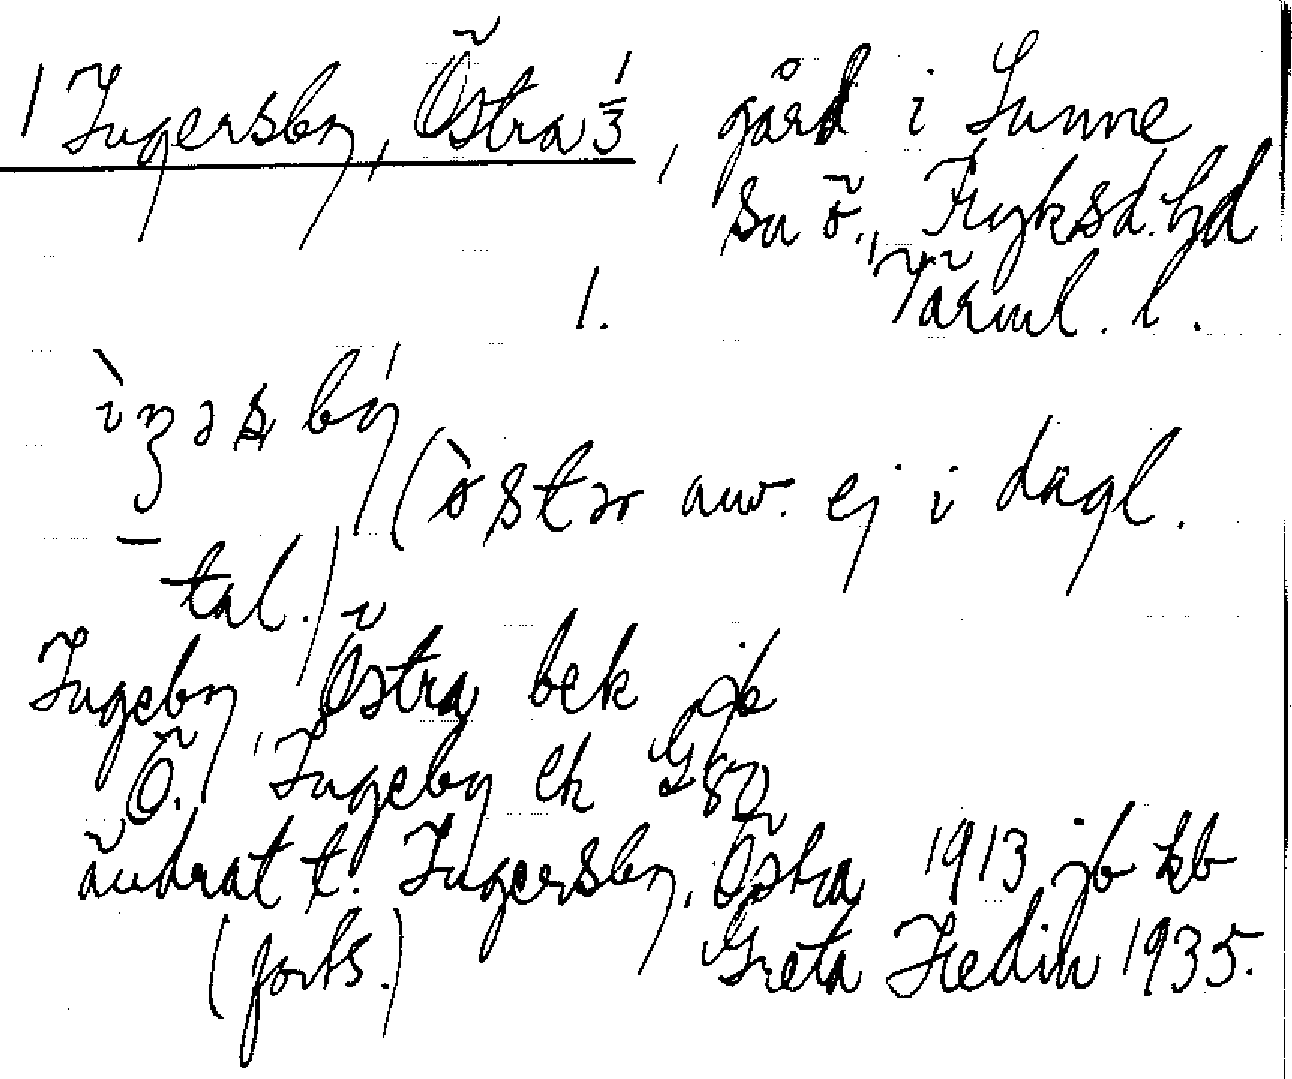 1 Ingersby, Östra 1/3, gård i Sunne
sn ö., Fryksd. hd
1. Värml. l.
ìŋəʂ bý
(òstər anv. ej i dagl.
tal.)
Ingeby, Östra bek jb
Ö. Ingeby ek G 80
ändrat t. Ingersby, Östra 1913 jb kb
(forts.) Greta Hedin 1935.